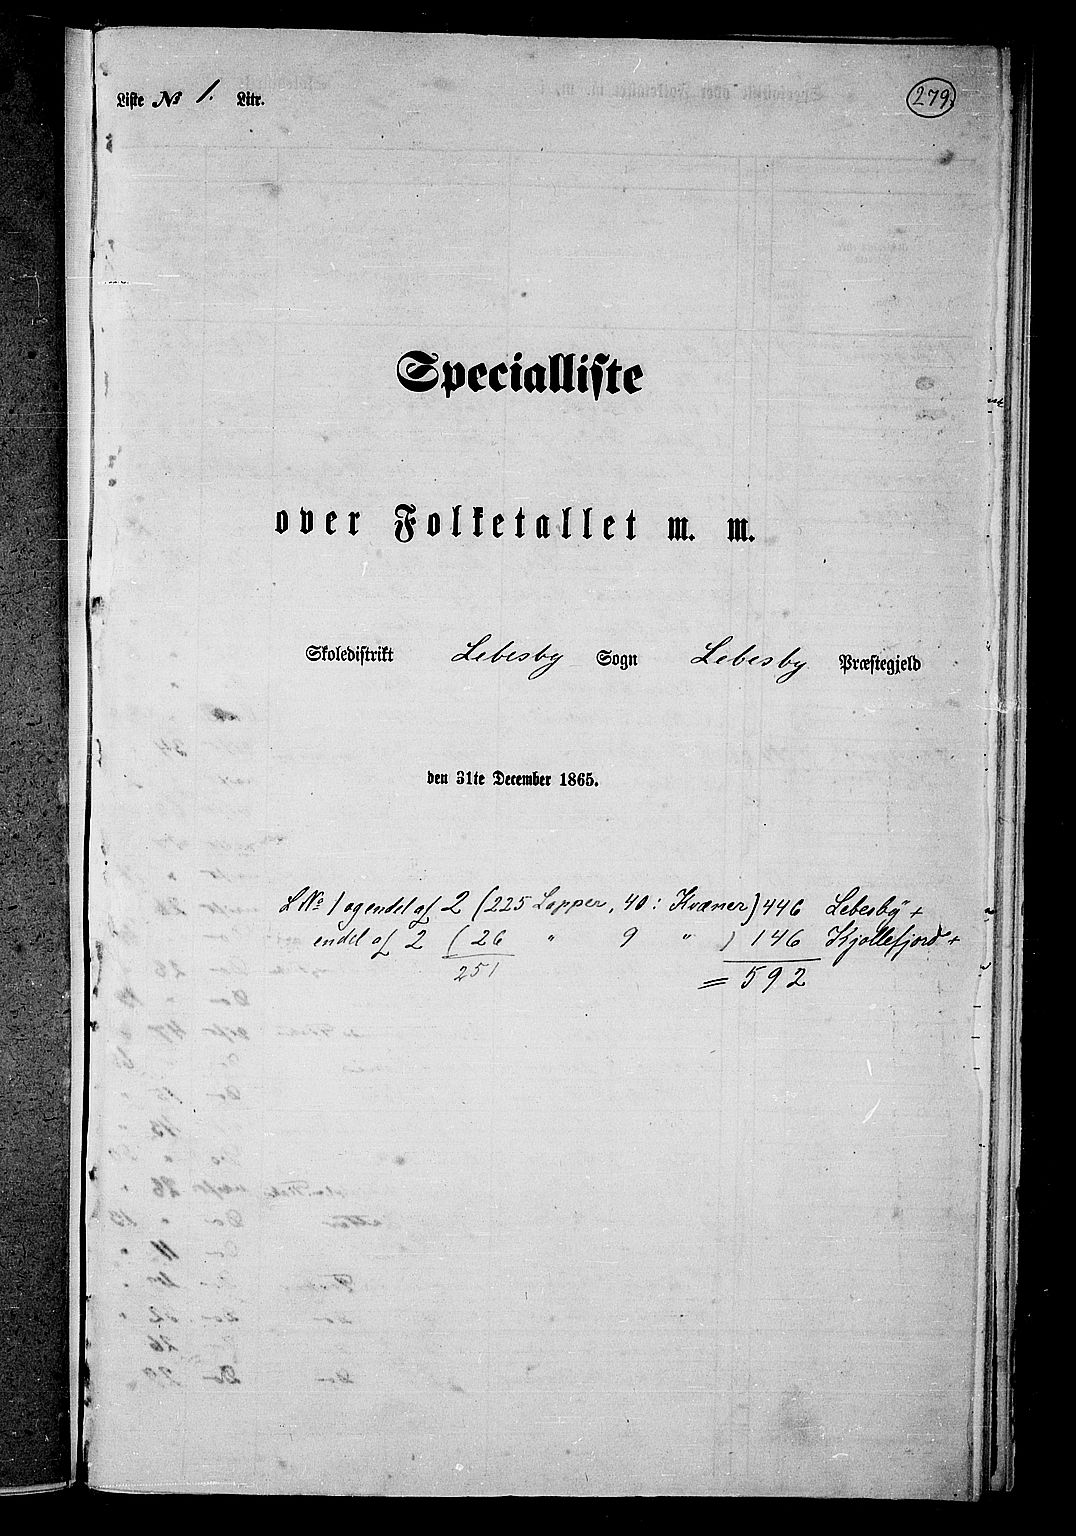 Liste № 1. Litr.
279.
Specialliste
over Folketallet m. m.
Skoledistrikt Lebesby Sogn Lebesby Præstegjeld
den 31te December 1865.
L № 1 og endel af 2 (225 Lapper, 40: Kvæner) 446 Lebesby +
endel af 2 (26 " 9 " ) 146 Kjøllefjord +
251 = 592